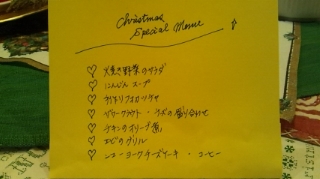 Christmas
Special Menu
♡ 火焼き野菜のサラダ
♡ にんじん スープ
♡ フォカッチャ
♡ ザワークラウト・の盛り合わせ
♡ チキンのオリーブ煮
♡ エビのグリル
♡ ニューヨークチーズケーキ ・ コーヒー